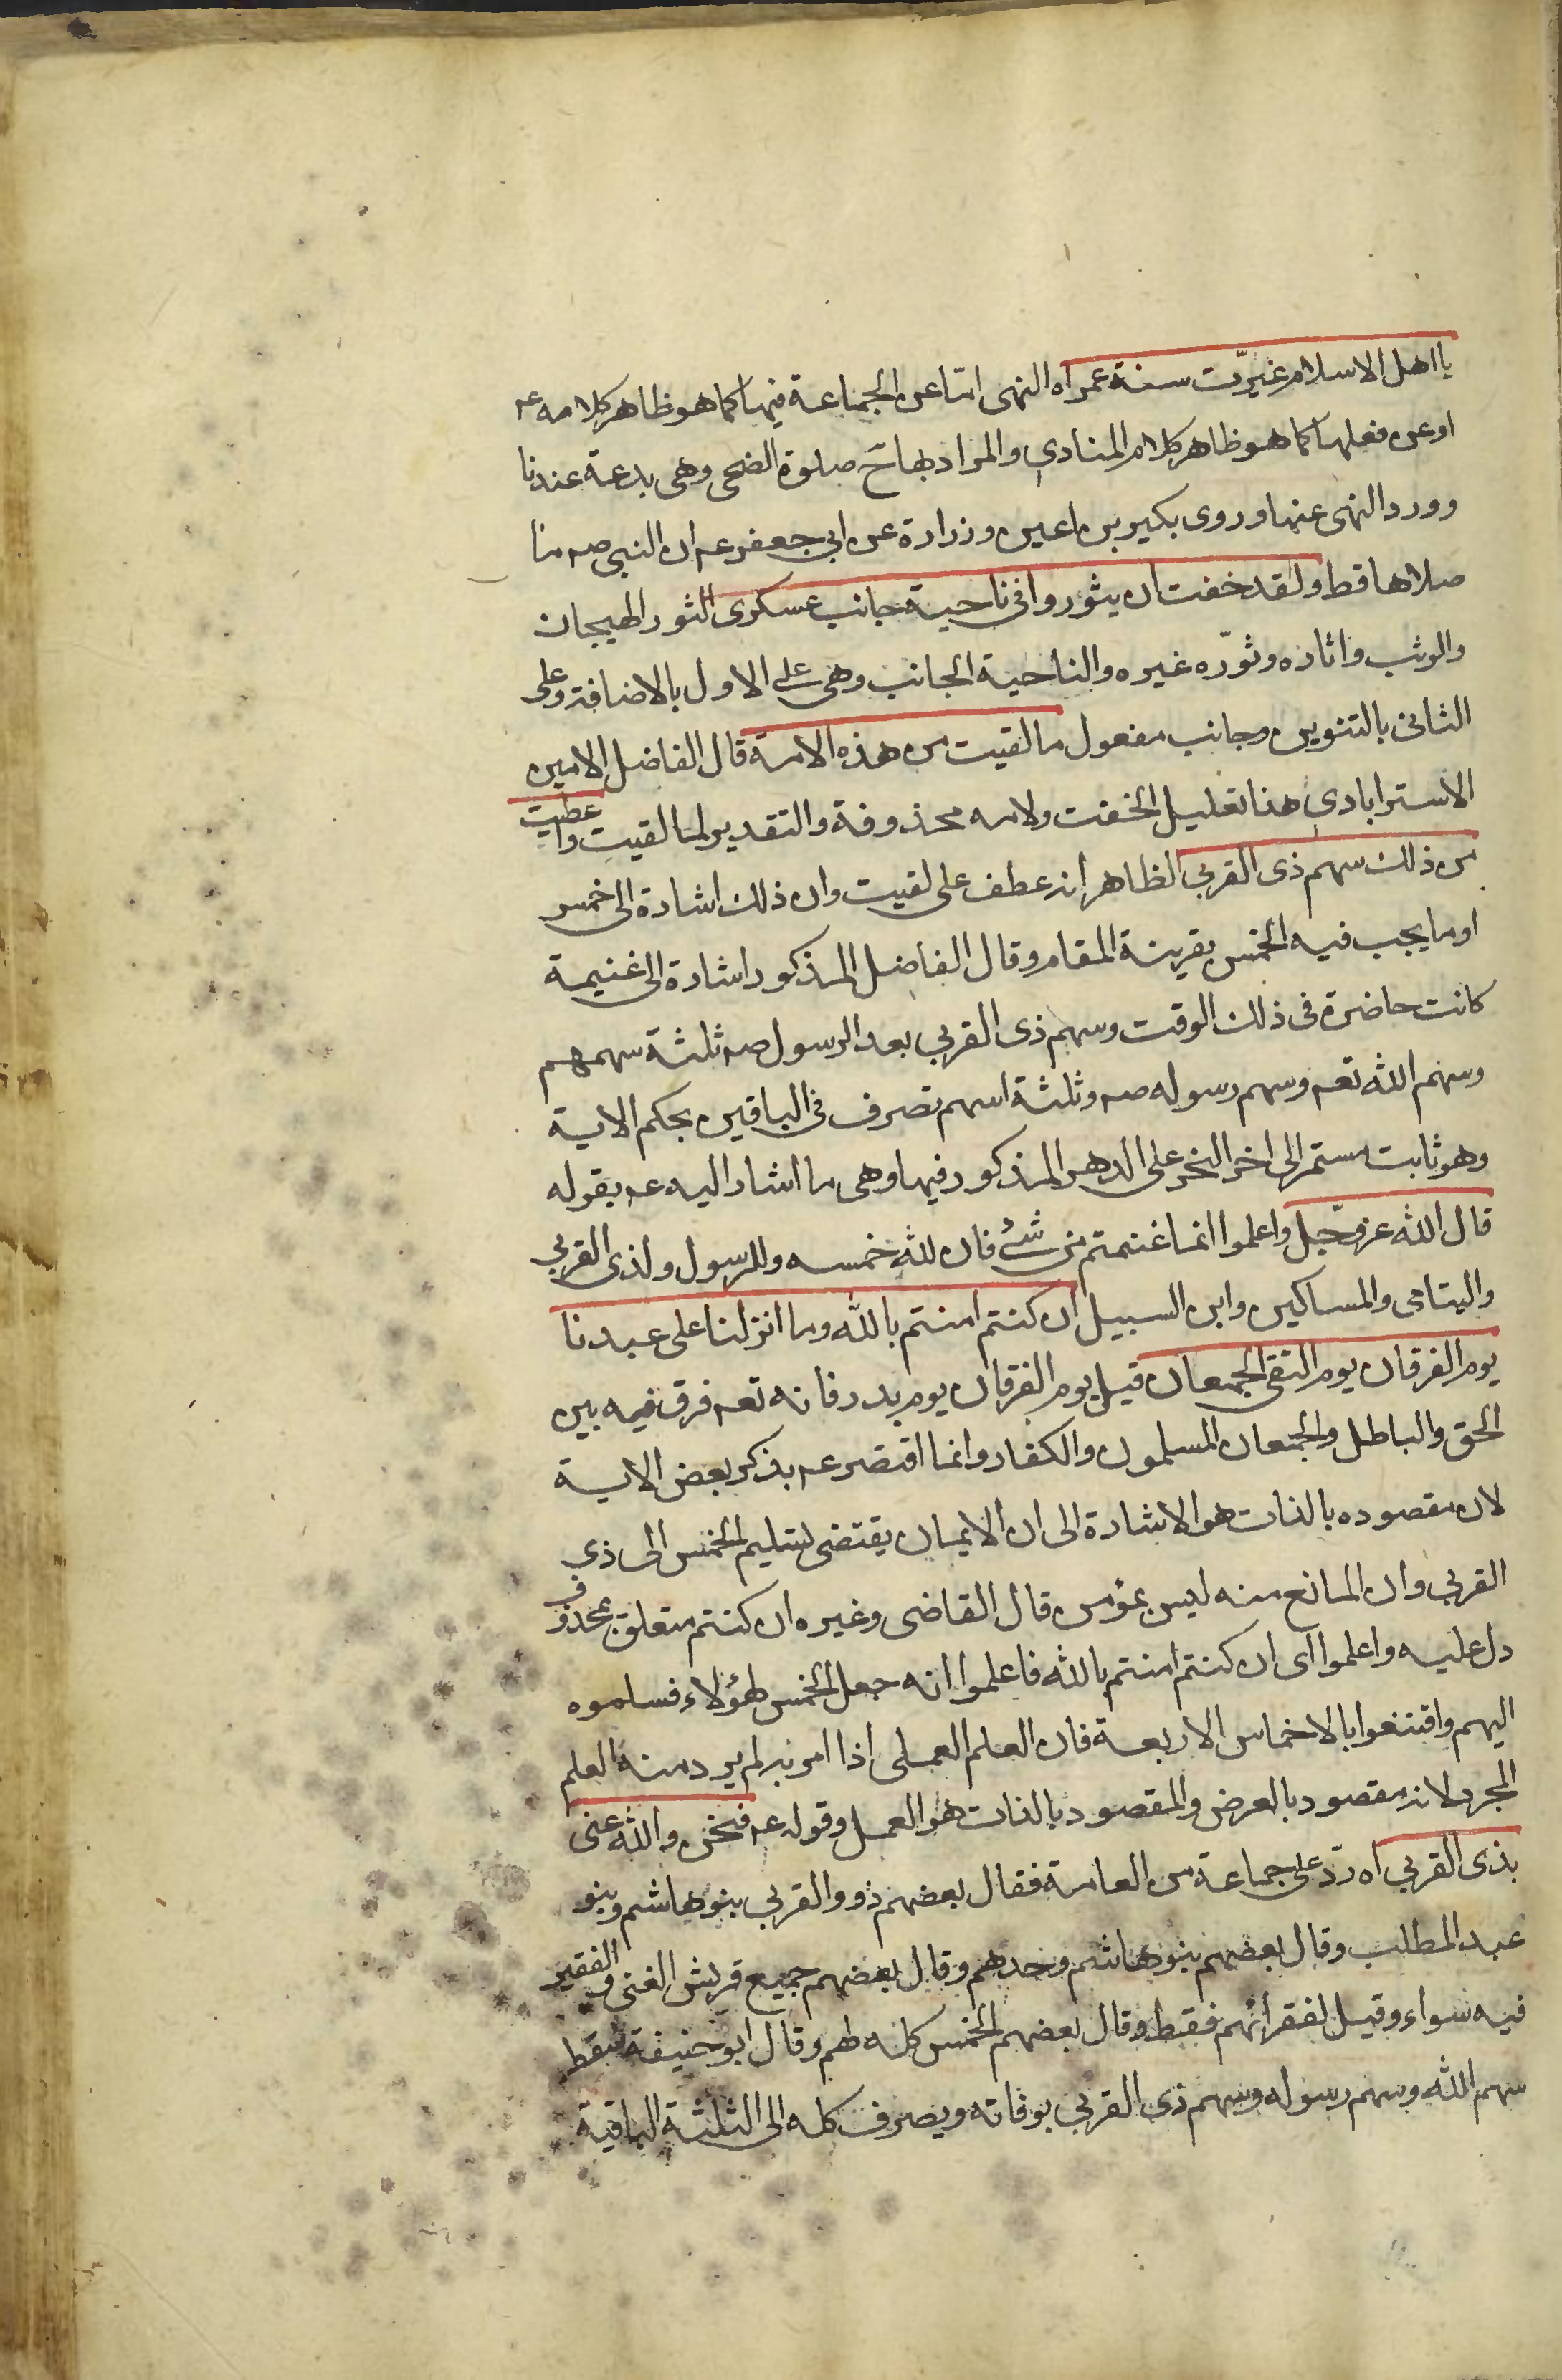 يا اهل الاسلام غيّرت سنة عمر اه النهى اما عن الجماعة فيها كما هو ظاهر كلامه ع
او عن فعلها كما هو ظاهر كلام المنادي والمراد بها ح صلوة الضحى وهى بدعة عندنا
وورد النهى عنها وروى بكير بن اعين وزرارة عن ابي جعفر ع ان النبي ص ما
صلاها قط ولقد خفت ان يثوروا في ناحية جانب عسكرى الثور الهيجان
والوثب واثاره وثوّره غيره والناحية الجانب وهى على الاول بالاضافة وعلى
الثانى بالتنوين وجانب مفعول ما لقيت من هذه الامة قال الفاضل الامين
الاسترابادي هنا تعليل لخفت ولامه محذوفة والتقدير لما لقيت واعطيت
من ذلك سهم ذى القربي الظاهر انه عطف على لقيت وان ذلك اشارة الى خمس
او ما يجب فيه الخمس بقرينة المقام وقال الفاضل المذكور اشارة الى غنيمة
كانت حاضرة فى ذلك الوقت وسهم ذى القربي بعد الرسول ص ثلثة سهمهم
وسهم الله تع وسهم رسوله ص وثلثة اسهم تصرف في الباقين بحكم الاية
وهو ثابت مستمر الى اخر الدهر على النحو المذكور فيها وهى ما اشار اليه ع بقوله
قال الله عز وجل واعلموا انما غنمتم من شئ فان لله خمسه وللرسول ولذي القربي
واليتامى والمساكين وابن السبيل ان كنتم امنتم بالله وما انزلنا على عبدنا
يوم الفرقان يوم التقى الجمعان قيل يوم الفرقان يوم بدر فانه تع فرق فيه بين
الحق والباطل والجمعان المسلمون والكفار وانما اقتصر ع بذكر بعض الاية
لان مقصوده بالذات هو الاشارة الى ان الايمان يقتضى تسليم الخمس الى ذي
القربي وان المانع منه ليس بمؤمن قال القاضى وغيره ان كنتم متعلق بمحذوف
دل عليه واعلموا اى ان كنتم امنتم بالله فاعلموا انه جعل الخمس لهؤلاء فسلموه
اليهم واقتنعوا بالاخماس الاربعة فان العلم العملى اذا امر به لم يرد منه العلم
المجرد لانه مقصود بالعرض والمقصود بالذات هو العمل وقوله ع فنحن والله عنى
بذى القربي اه ردّ على جماعة من العامة فقال بعضهم ذوو القربي بنو هاشم وبنو
عبد المطلب وقال بعضهم بنو هاشم وحدهم وقال بعضهم جميع قريش الغنى والفقير
فيه سواء وقيل لفقرائهم فقط وقال بعضهم الخمس كله لهم وقال ابو حنيفة سقط
سهم الله وسهم رسوله وسهم ذى القربي بوفاته ويصرف كله الى الثلثة الباقية